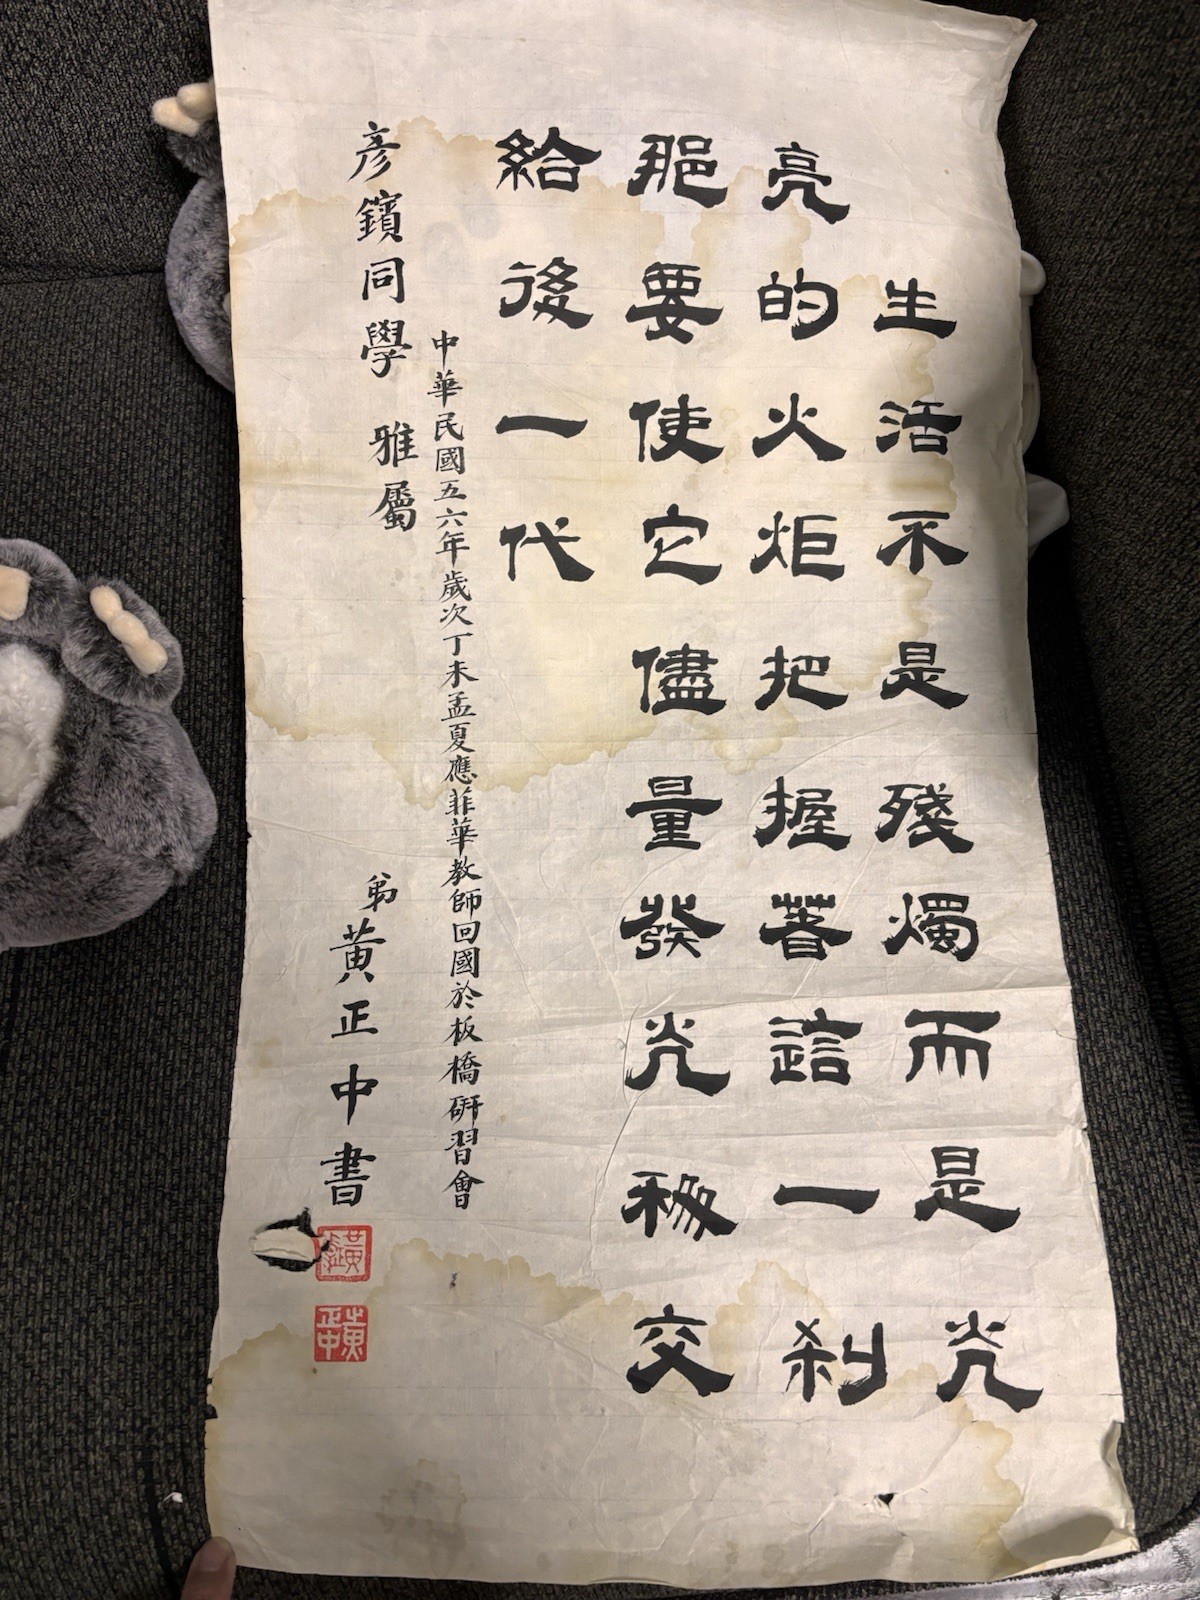 生活不是殘燭而是光
亮的火炬把握著這一刹
那要使它儘量發光移交
給後一代
中華民國五六年歲次丁未孟夏應菲華教師回國於板橋研習會
彥鑌同學 雅屬
弟黃正中書
黃正中